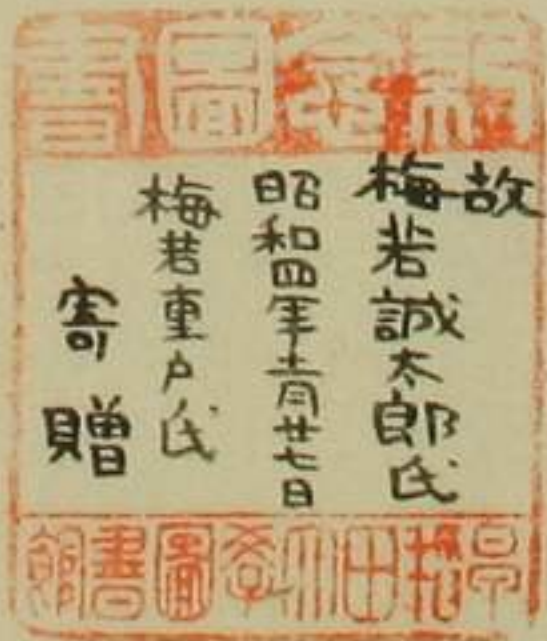 圖書
故
梅若誠太郎氏
昭和四年十二月廿七日
梅若重戶氏
寄贈
早稻田大學圖書館